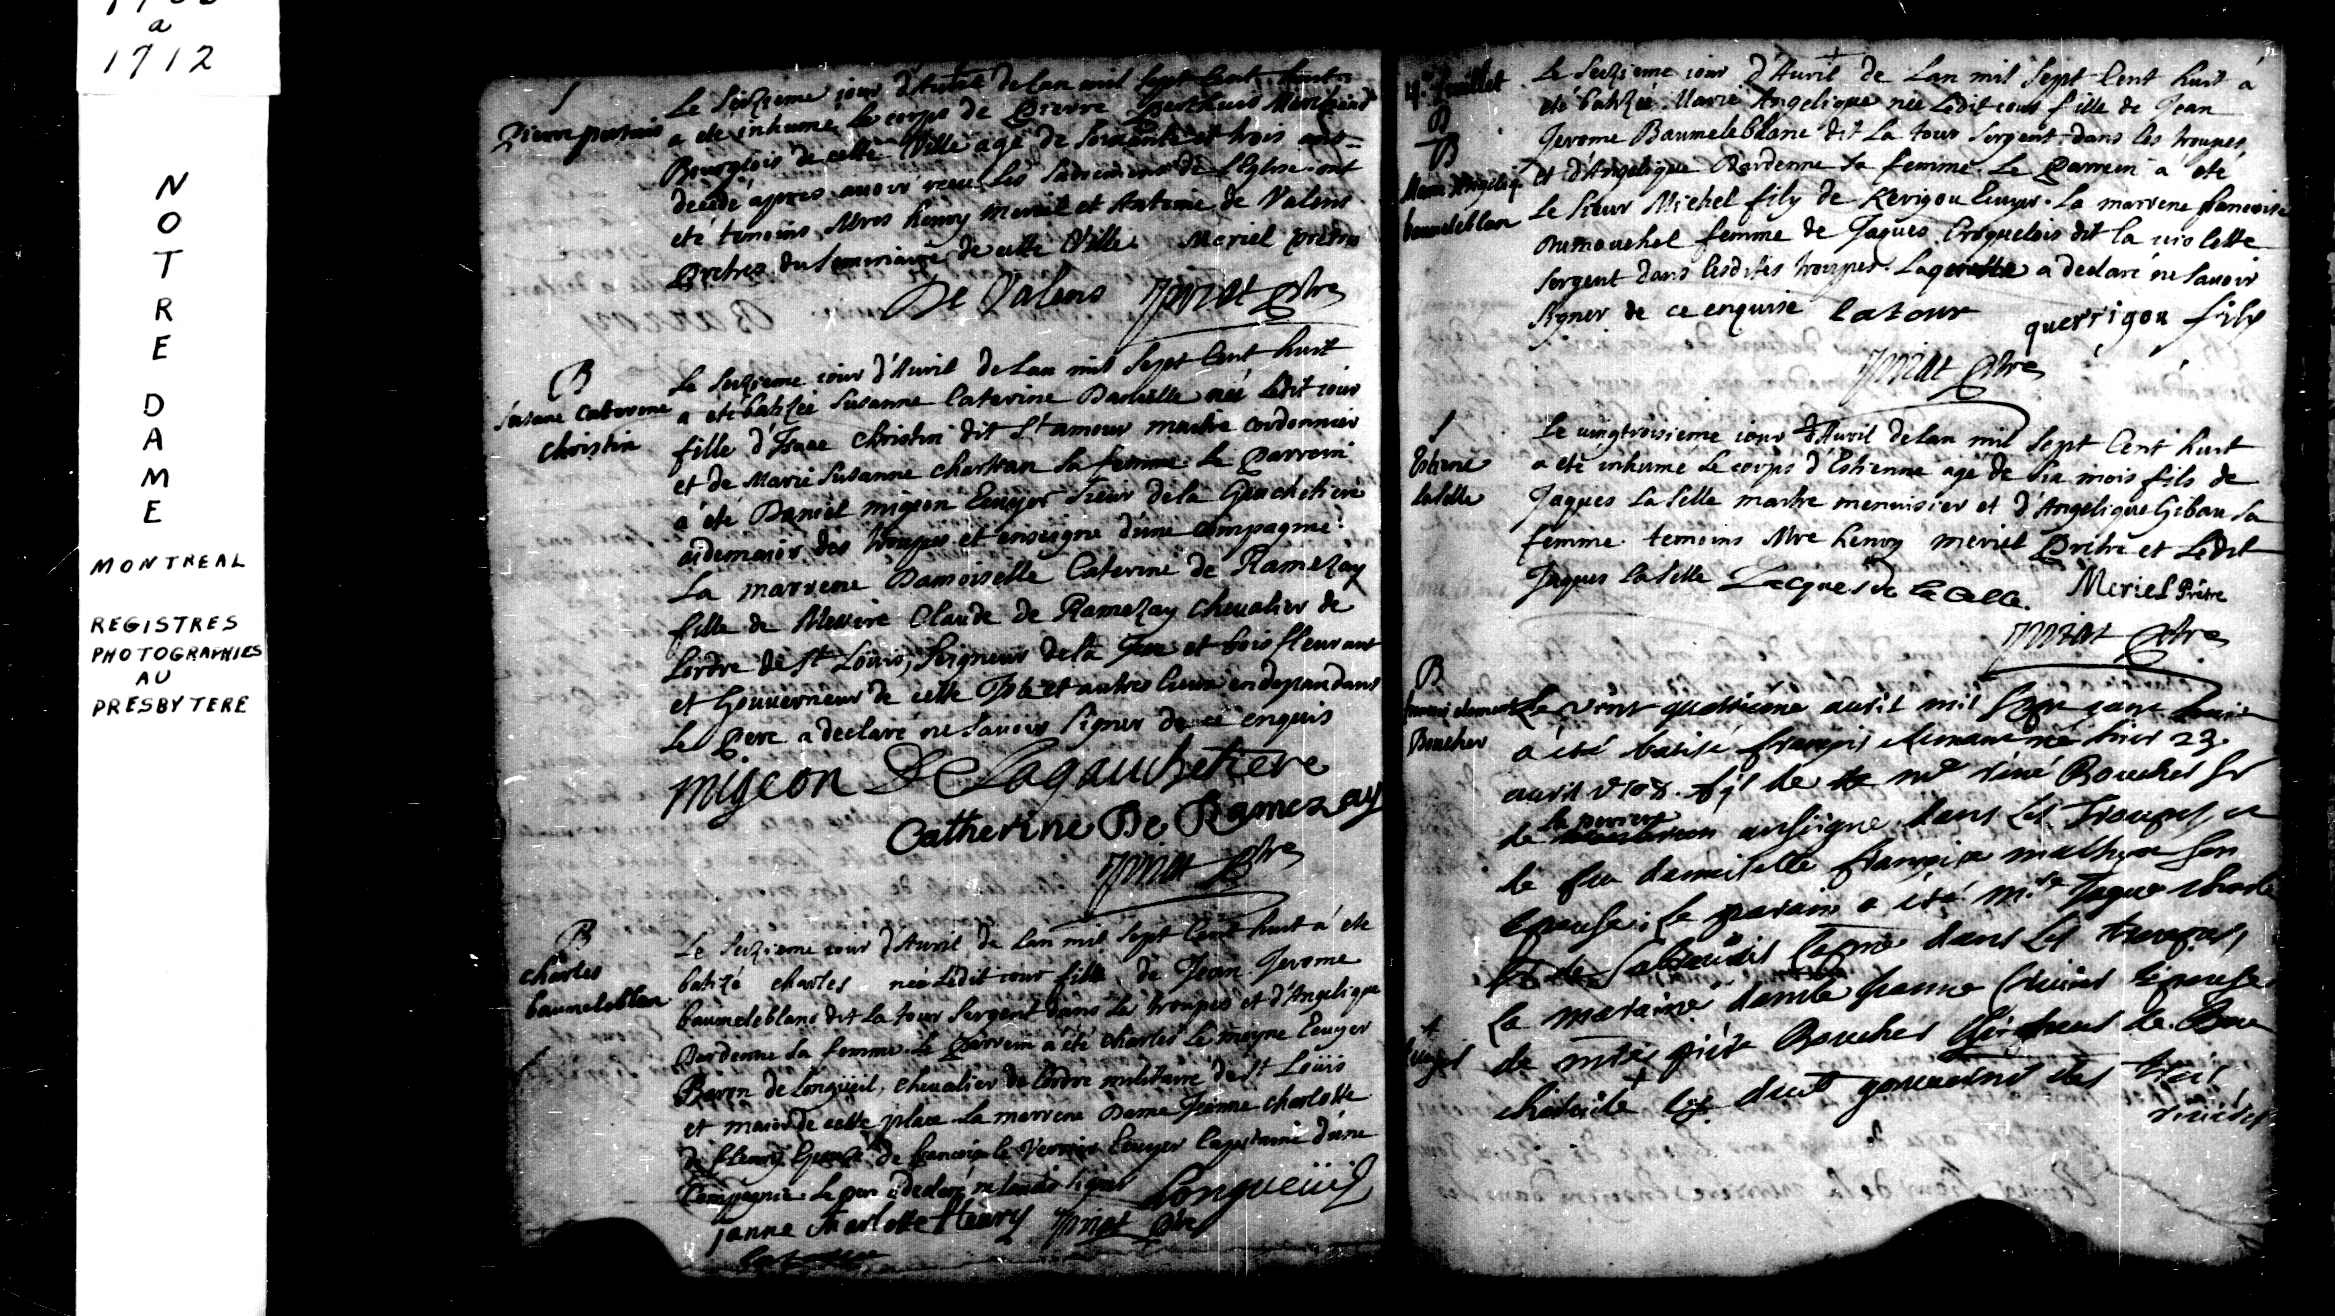 a
1712
NOTRE DAME
MONTREAL
REGISTRES
PHOTOGRAPHIES
AU
PRESBYTERE
S
Pierre pertuis
Le Seiziéme iour d'Auril de Lan mil Sept Cent huit
a ete inhumé le corps de Pierre Marchand
Bourgeois de cette Ville agé de Soixante et trois ans
decedé apres auoir receu les Sacremens de l'Eglise ont
eté temoins Mres henry meriel et Antoine de Valens
Prêtres du Seminaire de cette Ville Meriel prêtre
De Valens priat ptre
B
Susane Caterine
Christin
Le Seiziéme iour d'Auril de Lan mil Sept Cent huit
a eté batizée Susanne Caterine Danielle née Ledit iour
fille d'Isaac Christin dit St amour maitre cordonnier
et de Marie Susanne chartran Sa femme. Le Parrein
a été Daniel migeon Ecuyer Sieur de la Gauchetiere
aidemaior des troupes et enseigne d'une compagnie.
La marrene Damoiselle Caterine de Ramezay
fille de Messire Claude de Ramezay Cheualier de
Lordre de St Louis, Seigneur de la Jesse et bois fleurant
et Gouuerneur de cette Isle et autres lieux en dependans
Le Pere a declaré ne Sauoir Signer de ce enquis
migeon De Lagauchetiere
Catherine De Ramezay
priat ptre
B
Charles
baumeleblan
Le Seiziéme iour d'Auril de Lan mil Sept Cent huit à eté
batizé charles né Ledit iour fils de Jean Jerome
baumeleblanc dit La tour Sergent dans les troupes et d'Angelique
Dardenne Sa femme. Le Parrein a été charles Le moyne Ecuyer
Baron de Longueil, cheualier de lordre militaire de St Louis
et maior de cette place La marrene Dame Jeanne charlotte
de fleury de francois le Verrier Ecuyer Capitaine d'une
Compagnie. Le pere a declaré ne Sauoir Signer Longueuil
Janne charlotte fleury priat ptre
4e. feuillet
B
B
Marie Angeliq
baumeleblan
Le Seiziéme iour d'Auril de Lan mil Sept Cent huit á
eté batizée Marie Angelique née Ledit iour fille de Jean
Jerome Baumeleblanc dit La tour Sergent dans les troupes
et d'Angelique Dardenne Sa femme. Le Parrein a été
Le Sieur Michel fily de Kerigou Ecuyer. La marrene francoise
Dumouchel femme de Jaques Criquelois dit La uiolette
Sergent dans lesdites troupes. a declaré ne Sauoir
Signer de ce enquise Latour querrigou fily
priat ptre
S
Estiene
laSelle
Le uingtroisieme iour d'Auril de Lan mil Sept Cent huit
a eté inhumé Le corps d'Estienne agé de Six mois fils de
Jaques La Selle maitre menuisier et d'Angelique Gibau Sa
femme. temoins Mre henry meriel Prêtre et Ledit
Jaques La Selle Jacques de la celle. Meriel Prêtre
priat ptre
B
francois clement
Boucher
Le vint quatrieme auril mil Sept cent huit
a été batisé françois clemant né hier 23.
auril 1708. fils de mr rené Boucher Sr
de la perriere anseigne dans les Troupes, et
de damoiselle françoise malhiot Son
epouse: le parain a été mr. Jaque charle
de Sabreuois dans les troupes,
la maraine damle Jeanne Creuier epouse
de mre. pier Boucher Seigneur de Bou
cheruile gouuerneur des trois
riuieres